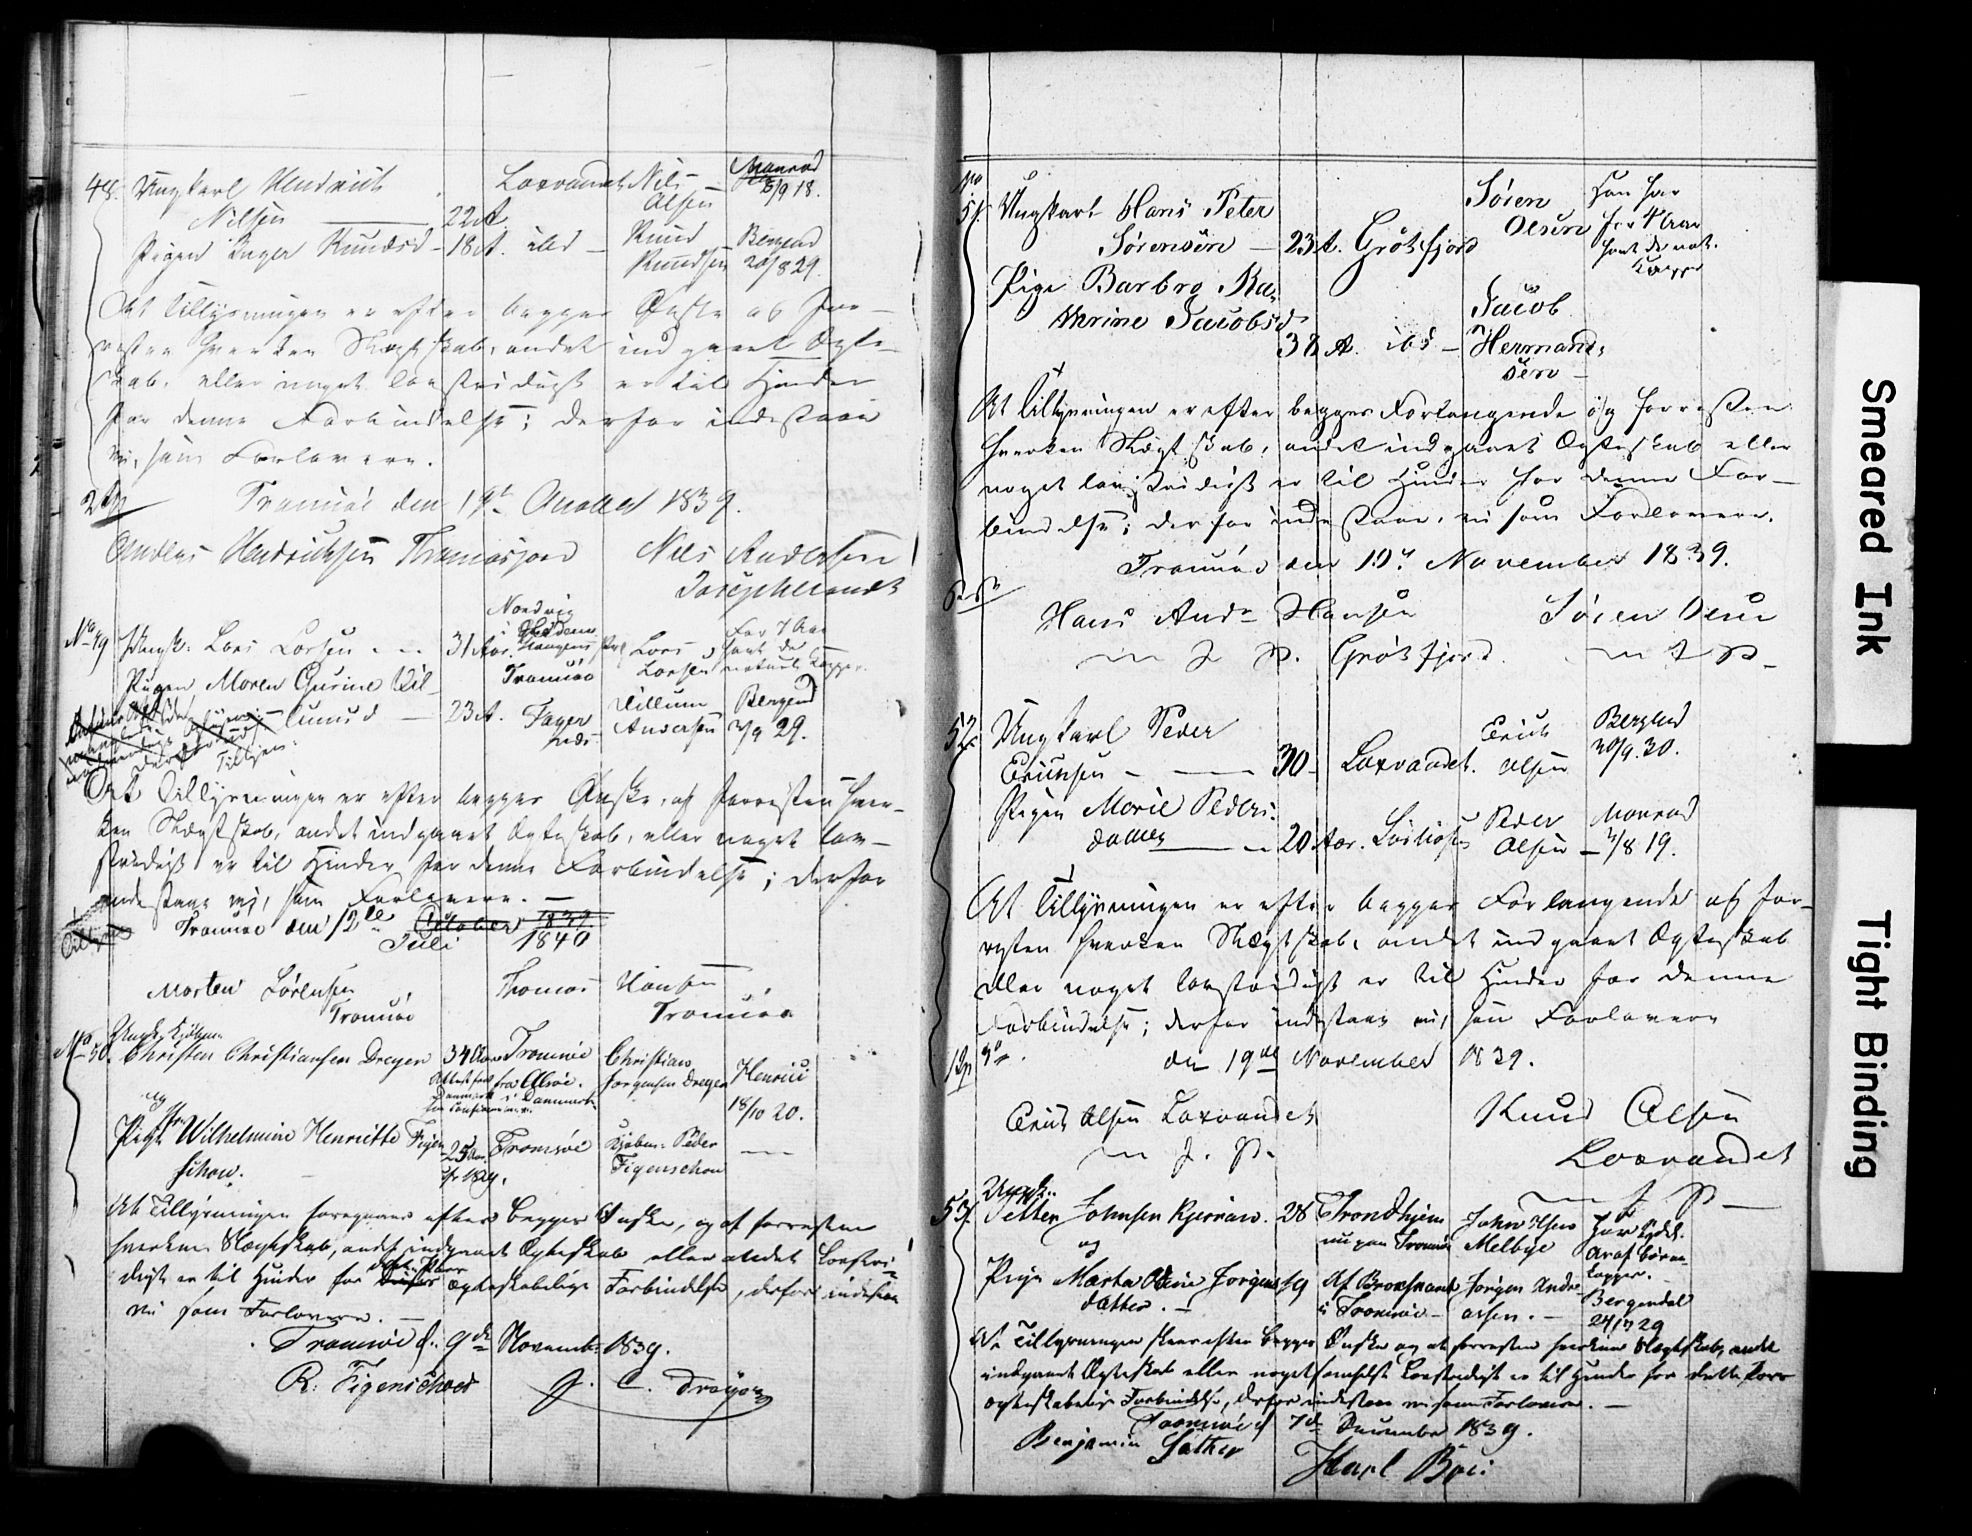 48. Ungkarl Hendrich
Nilsen — 22 A. Laxvandet Nils Olsen 5/9 18.
Pigen Inger Knudsd - 18 A. ibd - Knud Knudsen Bergend 20/8 29.
At Tillysningen er efter begges Ønske at for-
resten hverken Slægtskab, andet indgaaet Ægte-
skab, eller noget lovstridigt er til Hinder
for denne Forbindelse; derfor indestaae
vi, som Forlovere.
Tromsøe den 19de October 1839.
Andreas Hendrichsen Thomasjord Nils Andersen
No 49 Ungk: Lars Larsen 31 Aar. Tromsøe Lars Larsen For 7 Aar havt de naturl. Kopper.
Pigen Maren Gurine Til-
lumsd — 23 A. Tillum Andersen Bergend 29.
At Tillysningen er efter begges Ønske, at forresten hver-
ken Slægtskab, andet indgaaet Ægteskab, eller noget lov-
stridigt er til Hinder for denne Forbindelse; derfor
indestaae vi, som Forlovere. —
Tromsøe den 12te October 1839
Juli 1840
Morten Sørensen Thomas Hansen
Tromsøe Tromsøe
No 50. Ungk. Kjøbm.
Christen Christiansen Dreyer 34 Aar Tromsøe Christian Jørgensen Dreyer Henrici 18/10 20.
fra Alsøe i Danmark
og
Pige Wilhelmine Henriette Figen-
schou. 25 Aar Tromsøe Kjøbm: Peder Figenschou
At Tillysningen foregaaer efter begges Ønske, og at forresten
hverken Slægtskab, andet indgaaet Ægteskab eller andet Lovstri-
digt er til Hinder for dette Pars ægteskabelige Forbindelse, derfor indestaae
vi som Forlovere. —
Tromsøe d: 9de Novemb: 1839.
R. Figenschou J. C. Dreyer
No
51. Ungkarl Hans Peter
Sørensen — 23 A. Grøtfjord Søren Olsen Han har for 4 Aar havt de nat. Kopper
Pige Barbro Ka-
thrine Jacobsd
38 A. ibd - Jacob Hermand-
sen —
At Tillysningen er efter begges Forlangende og forresten
hverken Slægtskab, andet indgaaet Ægteskab eller
noget lovstridigt er til Hinder for denne For-
bindelse; derfor indestaae, vi som Forlovere.
Tromsøe den 19de November 1839.
Hans And. Hansen Søren Olsen
m. f. P. Grøtfjord. m. f. P.
52. Ungkarl Peder
Erichsen - — 30 - Laxvandet. Erich Olsen Bergend 30/9. 30.
Pigen Marie Peders-
datter — 20 Aar. Peder Olsen Monrad /8 19.
At Tillysningen er efter begges Forlangende at for-
resten hverken Slægtskab, andet indgaaet Ægteskab
eller noget lovstridigt er til Hinder for denne
Forbindelse; derfor indestaae vi, som Forlovere
den 19de November 1839.
Erich Olsen Laxvandet Knud Olsen
m. f. P. Laxvandet
m f P —
Ungk.
53. Petter Johnsen Kjerran. 28 Trondhjem John Olsen Melbye
nu paa Tromsøe
og
Pige Martha Oline Jørgens- 19 Jørgen Andre-
datter. — i Tromsøe - assen. — Bergendal 29
At Tillysningen skeer efter begges Ønske og at forresten hverken Slægtskab, andet
indgaaet Ægteskab eller noget somhelst Lovstridigt er til Hinder for dette Pars
ægteskabelige Forbindelse, derfor indestaae vi som Forlovere. —
Tromsøe d 7de December 1839.
Benjamin Sæther Karl Boe.
Smeared Ink
Tight Binding